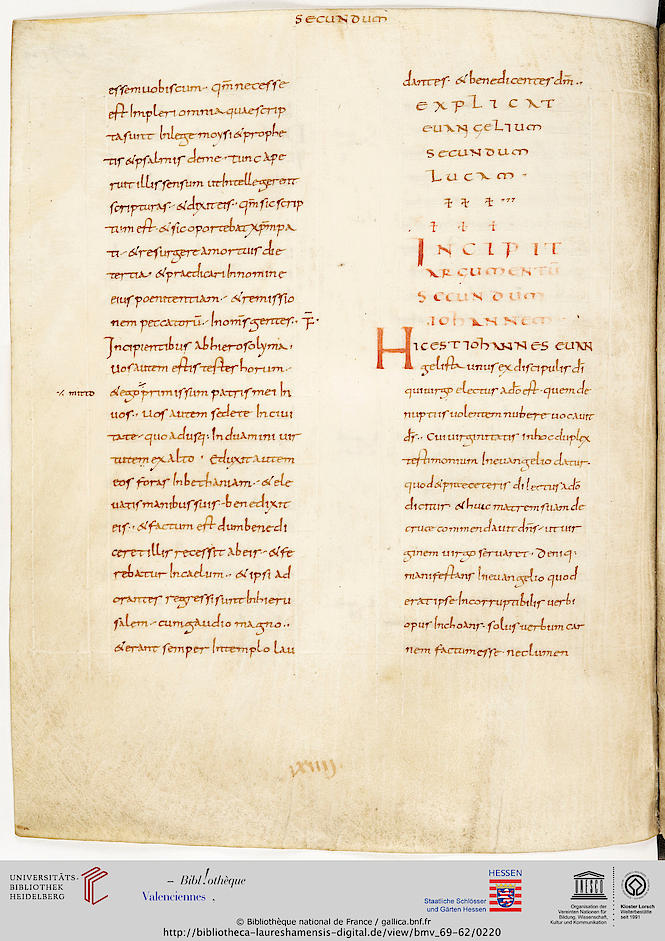 SECUNDUM
essem uobiscum · qm̄ necesse
est Impleri omnia quae scrip
ta sunt In lege moysi & prophe
tis & psalmis de me · tunc ape
ruit illis sensum ut Intellegerent
scripturas · & dixit eis · qm̄ sic scrip
tum est · & sic oportebat xp̄m pa
ti · & resurgere a mortuis die
tertia · & praedicari In nomine
eius poenitentiam · & remissio
nem peccatorū · In om̄s gentes ·
Incipientibus ab hierosolyma ·
uos autem estis testes horum ·
mitto
& ego promissum patris mei In
uos · uos autem sedete In ciui
tate · quo adusq: Induamini uir
tutem ex alto · Eduxit autem
eos foras In bethaniam · & ele
uatis manibus suis · benedixit
eis · & factum est dum benedi
ceret illis recessit ab eis · & fe
rebatur In caelum · & ipsi ad
orantes regressi sunt In hieru
salem · cum gaudio magno ·
& erant semper In templo lau
dantes · & benedicentes dm̄ ·
EXPLICAT
EUANGELIUM
SECUNDUM
LUCAM ·
INCIPIT
ARGUMENTŪ
SECUNDUM
IOHANNEM
HIC EST IOHANNES EUAN
gelista unus ex discipulis dī
qui uirgo electus a dō est · quem de
nuptiis uolentem nubere uocauit
dī · Cui uirginitatis in hoc duplex
testimonium In euangelio datur ·
quod & prae ceteris dilectus a dō
dicitur · & huic matrem suam de
cruce commendauit dn̄s · ut uir
ginem uirgo seruaret · Deniq·
manifestans In euangelio quod
erat ipse Incorruptibilis uerbi
opus Inchoans · solus uerbum car
nem factum esse · nec lumen
UNIVERSITÄTS-
BIBLIOTHEK
HEIDELBERG
Bibliothèque
Valenciennes
HESSEN
Staatliche Schlösser
und Gärten Hessen
UNESCO
Organisation der
Vereinten Nationen für
Bildung, Wissenschaft,
Kultur und Kommunikation
Kloster Lorsch
Welterbestätte
seit 1991
© Bibliothèque national de France / gallica.bnf.fr
http://bibliotheca-laureshamensis-digital.de/view/bmv_69-62/0220